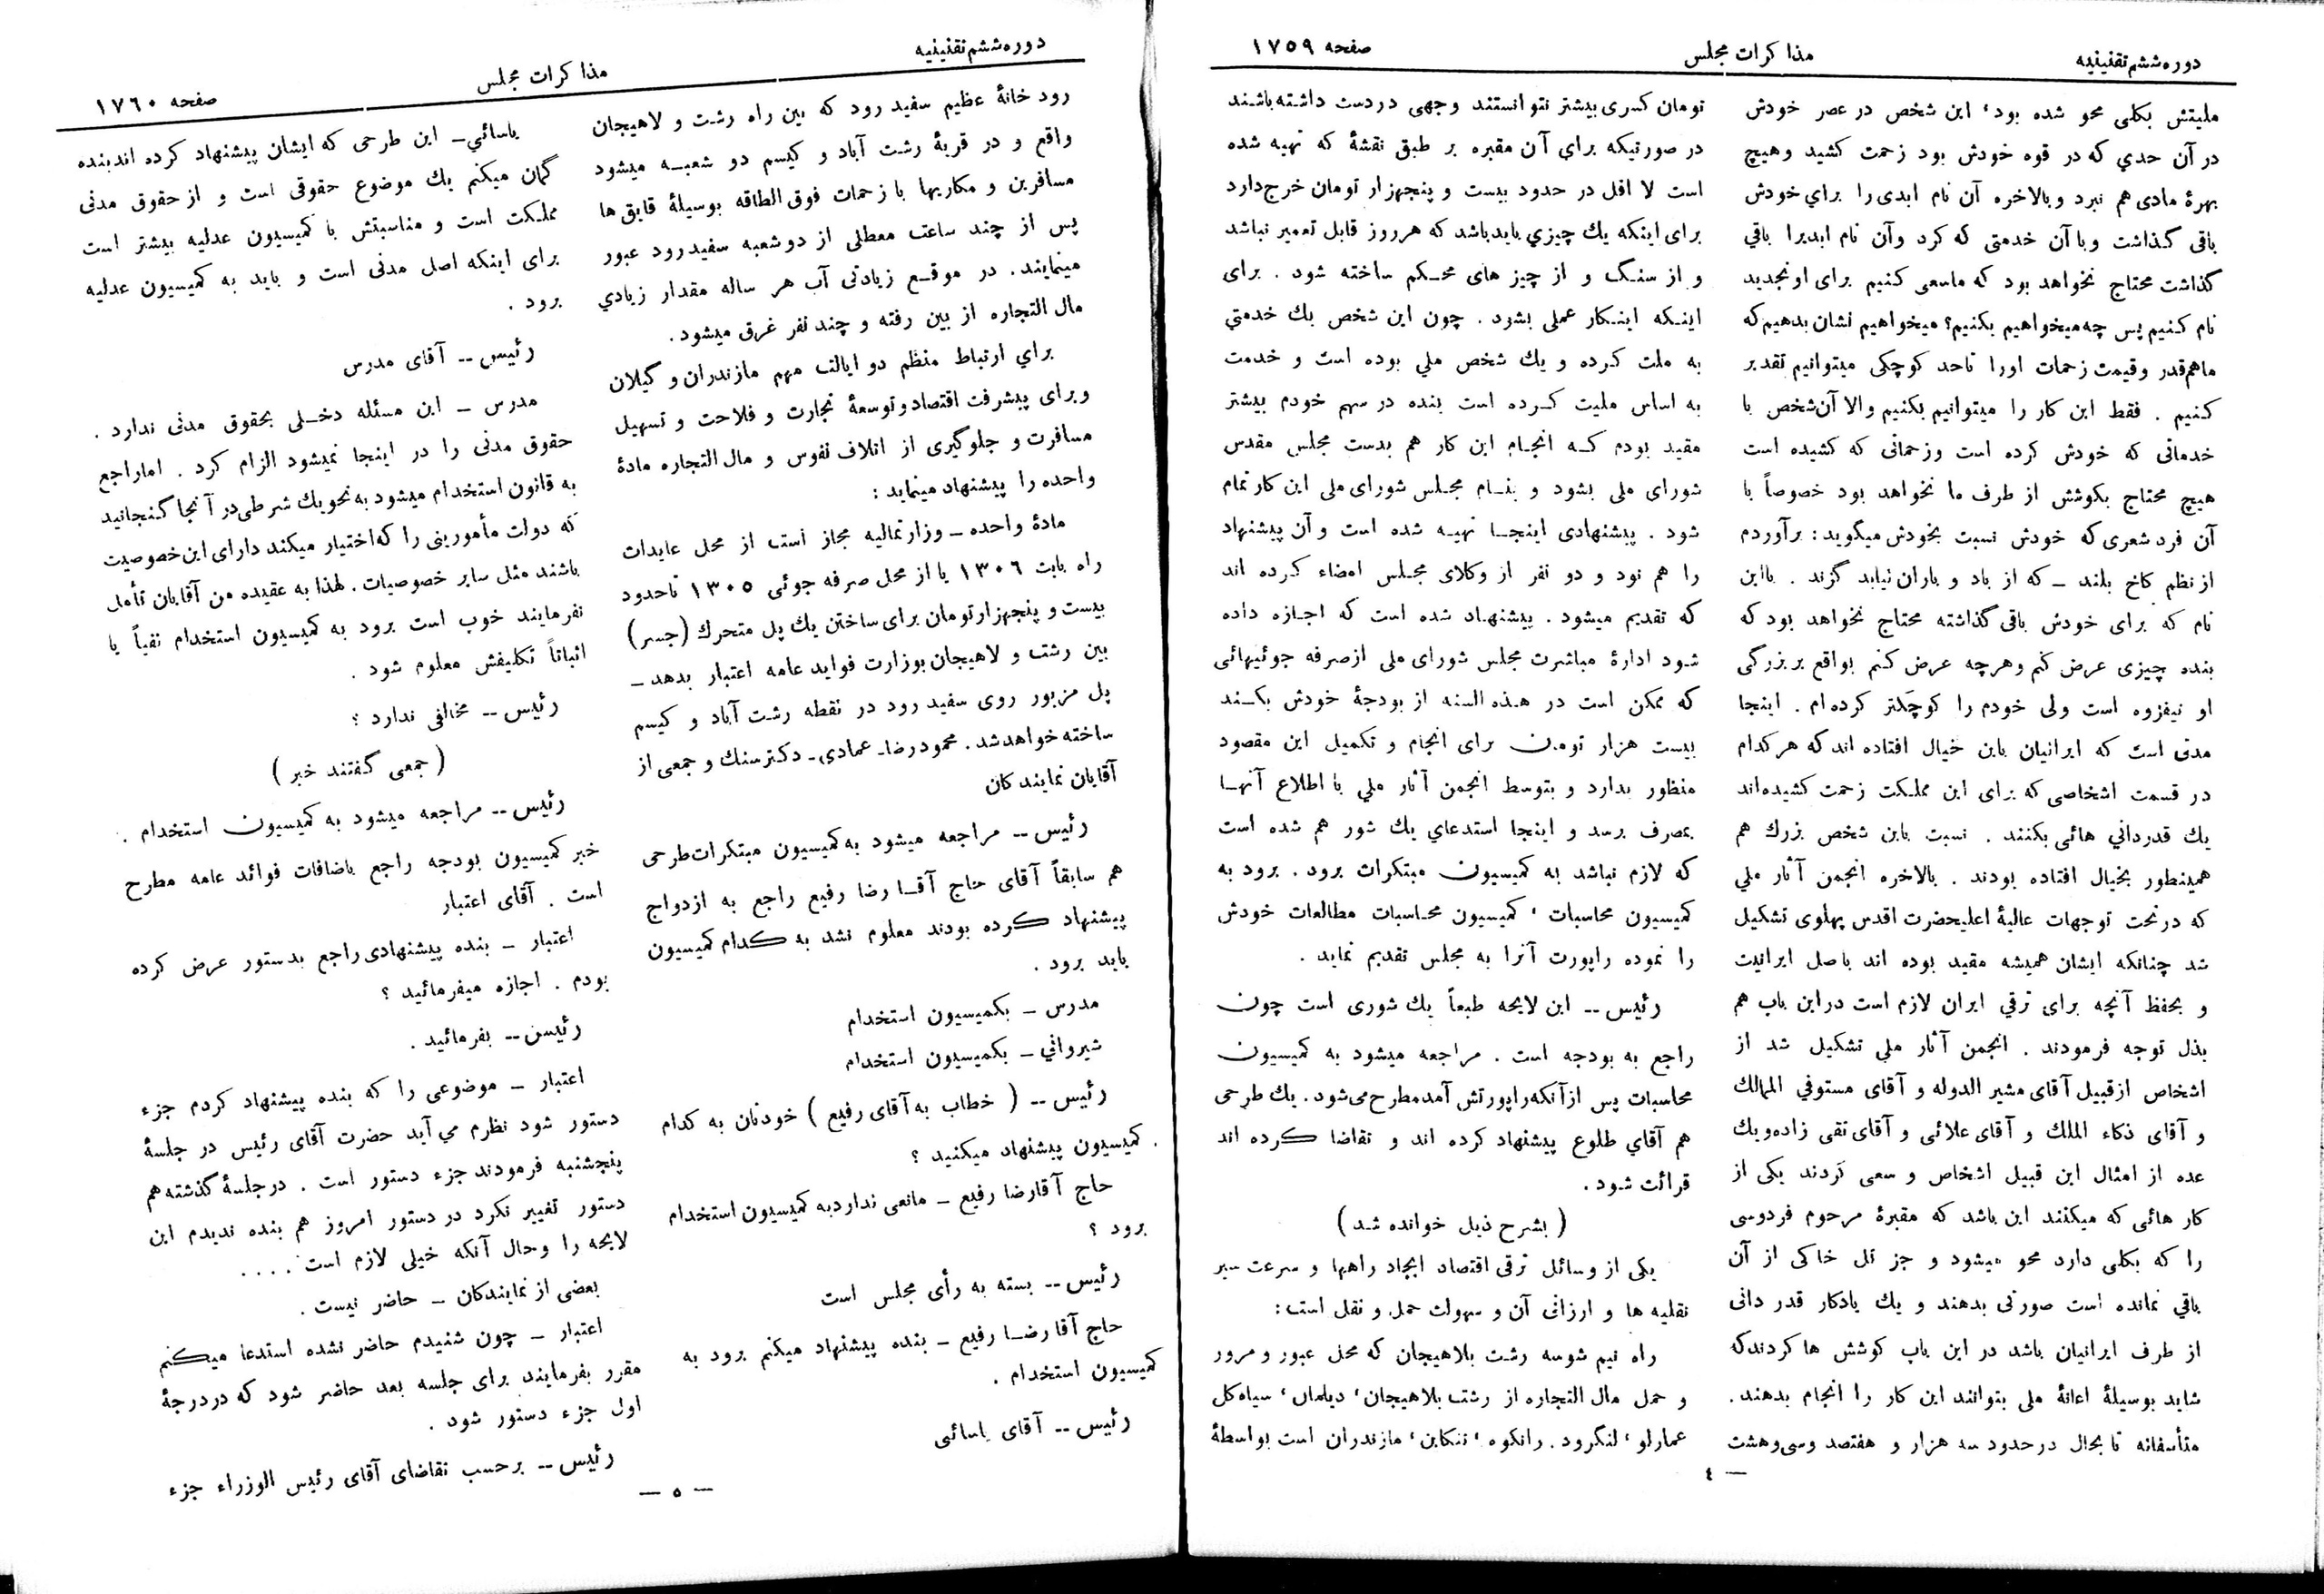 دوره ششم تقنینیه
مذاکرات مجلس
صفحه ۱۷۵۹
ملیتش بکلی محو شده بود، این شخص در عصر خودش
در آن حدي که در قوه خودش بود زحمت کشید وهیچ
بهرهٔ مادی هم نبرد وبالاخره آن نام ابدی را براي خودش
باقی گذاشت وبا آن خدمتی که کرد وآن نام ابدیرا باقي
گذاشت محتاج نخواهد بود که ماسعی کنیم برای او تجدید
نام کنیم پس چه میخواهیم بکنیم؟ میخواهیم نشان بدهیم که
ماهم قدر وقیمت زحمات اورا تاحد کوچکی میتوانیم تقدیر
کنیم . فقط این کار را میتوانیم بکنیم والا آن شخص با
خدماتی که خودش کرده است وزحماتی که کشیده است
هیچ محتاج بکوشش از طرف ما نخواهد بود خصوصاً با
آن فرد شعری که خودش نسبت بخودش میگوید: برآوردم
از نظم کاخ بلند ـ که از باد و باران نیابد گزند . بااین
نام که برای خودش باقی گذاشته محتاج نخواهد بود که
بنده چیزی عرض کنم وهرچه عرض کنم بواقع بر بزرگی
او نیفزوه است ولی خودم را کوچکتر کرده ام . اینجا
مدتی است که ایرانیان باین خیال افتاده اند که هر کدام
در قسمت اشخاصی که برای این مملکت زحمت کشیده اند
یك قدرداني هائی بکنند . نسبت باین شخص بزرك هم
همینطور بخیال افتاده بودند . بالاخره انجمن آثار ملي
که در تحت توجهات عالیهٔ اعلیحضرت اقدس پهلوی تشکیل
شد چنانکه ایشان همیشه مقید بوده اند باصل ایرانیت
و بحفظ آنچه برای ترقي ایران لازم است در این باب هم
بذل توجه فرمودند . انجمن آثار ملي تشکیل شد از
اشخاص از قبیل آقای مشیر الدوله و آقای مستوفي الممالك
و آقای ذکاء الملك و آقای علائی و آقای تقی زاده ویك
عده از امثال این قبیل اشخاص و سعی کردند یکی از
کار هائی که میکنند این باشد که مقبرهٔ مرحوم فردوسی
را که بکلی دارد محو میشود و جز تل خاکی از آن
باقي نمانده است صورتی بدهند و یك یادکار قدر دانی
از طرف ایرانیان باشد در این باب کوشش ها کردند که
شاید بوسیلهٔ اعانهٔ ملی بتوانند این کار را انجام بدهند .
متأسفانه تا بحال در حدود سه هزار و هفتصد وسی وهشت
تومان کسری بیشتر نتوانستند وجهی در دست داشته باشند
در صورتیکه برای آن مقبره بر طبق نقشهٔ که تهیه شده
است لا اقل در حدود بیست و پنجهزار تومان خرج دارد
برای اینکه یك چیزي باید باشد که هرروز قابل تعمیر نباشد
و از سنگ و از چیز های محکم ساخته شود . برای
اینکه اینکار عملی بشود . چون این شخص یك خدمتي
به ملت کرده و یك شخص ملي بوده است و خدمت
به اساس ملیت کرده است بنده در سهم خودم بیشتر
مقید بودم که انجام این کار هم بدست مجلس مقدس
شورای ملی بشود و بنام مجلس شورای ملی این کار تمام
شود . پیشنهادی اینجا تهیه شده است و آن پیشنهاد
را هم نود و دو نفر از وکلای مجلس امضاء کرده اند
که تقدیم میشود . پیشنهاد شده است که اجازه داده
شود ادارهٔ مباشرت مجلس شورای ملی از صرفه جوئیهائی
که ممکن است در هذه السنه از بودجهٔ خودش بکند
بیست هزار تومان برای انجام و تکمیل این مقصود
منظور بدارد و بتوسط انجمن آثار ملي با اطلاع آنها
بمصرف برسد و اینجا استدعاي یك شور هم شده است
که لازم نباشد به کمیسیون مبتکرات برود . برود به
کمیسیون محاسبات ، کمیسیون محاسبات مطالعات خودش
را نموده راپورت آنرا به مجلس تقدیم نماید .
رئیس ـ این لایحه طبعاً یك شوری است چون
راجع به بودجه است . مراجعه میشود به کمیسیون
محاسبات پس از آنکه راپورتش آمد مطرح می شود . یك طرحی
هم آقاي طلوع پیشنهاد کرده اند و تقاضا کرده اند
قرائت شود .
( بشرح ذیل خوانده شد )
یکی از وسائل ترقی اقتصاد ایجاد راهها و سرعت سیر
نقلیه ها و ارزانی آن و سهولت حمل و نقل است :
راه نیم شوسه رشت بلاهیجان که محل عبور و مرور
و حمل مال التجاره از رشت بلاهیجان ، دیلمان ، سیاه کل
عمارلو ، لنگرود . رانکوه ، تنکابن ، مازندران است بواسطهٔ
— ٤
دوره ششم تقنینیه
مذاکرات مجلس
صفحه ۱۷٦۰
رود خانهٔ عظیم سفید رود که بین راه رشت و لاهیجان
واقع و در قریهٔ رشت آباد و کیسم دو شعبه میشود
مسافرین و مکاریها با زحمات فوق الطاقه بوسیلهٔ قایق ها
پس از چند ساعت معطلی از دو شعبه سفید رود عبور
مینمایند . در موقع زیادتی آب هر ساله مقدار زیادي
مال التجاره از بین رفته و چند نفر غرق میشود .
براي ارتباط منظم دو ایالت مهم مازندران و گیلان
و برای پیشرفت اقتصاد و توسعهٔ تجارت و فلاحت و تسهیل
مسافرت و جلوگیری از اتلاف نفوس و مال التجاره مادهٔ
واحده را پیشنهاد مینماید :
مادهٔ واحده ـ وزارتمالیه مجاز است از محل عایدات
راه بابت ۱۳۰٦ یا از محل صرفه جوئی ۱۳۰٥ تاحدود
بیست و پنجهزار تومان برای ساختن یك پل متحرك (جسر)
بین رشت و لاهیجان بوزارت فواید عامه اعتبار بدهد ـ
پل مزبور روی سفید رود در نقطه رشت آباد و کیسم
ساخته خواهد شد . محمود رضا ـ عمادي ـ دکتر سنك و جمعی از
آقایان نمایندکان
رئیس ـ مراجعه میشود به کمیسیون مبتکرات طرحی
هم سابقاً آقای حاج آقا رضا رفیع راجع به ازدواج
پیشنهاد کرده بودند معلوم نشد به کدام کمیسیون
باید برود .
مدرس ـ بکمیسیون استخدام
شیرواني ـ بکمیسیون استخدام
رئیس ـ ( خطاب به آقای رفیع ) خودتان به کدام
کمیسیون پیشنهاد میکنید ؟
حاج آقارضا رفیع ـ مانعی ندارد به کمیسیون استخدام
برود ؟
رئیس ـ بسته به رأی مجلس است
حاج آقا رضا رفیع ـ بنده پیشنهاد میکنم برود به
کمیسیون استخدام .
رئیس ـ آقای یاسائی
یاسائي ـ این طرحی که ایشان پیشنهاد کرده اند بنده
گمان میکنم یك موضوع حقوقی است و از حقوق مدنی
مملکت است و مناسبتش با کمیسیون عدلیه بیشتر است
برای اینکه اصل مدنی است و باید به کمیسیون عدلیه
برود .
رئیس ـ آقای مدرس
مدرس ـ این مسئله دخلی بحقوق مدنی ندارد .
حقوق مدنی را در اینجا نمیشود الزام کرد . اما راجع
به قانون استخدام میشود به نحویك شرطی در آنجا گنجانید
که دولت مأمورینی را که اختیار میکند دارای این خصوصیت
باشند مثل سایر خصوصیات . لهذا به عقیده من آقایان تأمل
نفرمایند خوب است برود به کمیسیون استخدام نفیاً یا
اثباتاً تکلیفش معلوم شود .
رئیس ـ مخالفی ندارد ؟
( جمعی گفتند خیر )
رئیس ـ مراجعه میشود به کمیسیون استخدام .
خبر کمیسیون بودجه راجع باضافات فوائد عامه مطرح
است . آقای اعتبار
اعتبار ـ بنده پیشنهادی راجع بدستور عرض کرده
بودم . اجازه میفرمائید ؟
رئیس ـ بفرمائید .
اعتبار ـ موضوعی را که بنده پیشنهاد کردم جزء
دستور شود نظرم می آید حضرت آقای رئیس در جلسهٔ
پنجشنبه فرمودند جزء دستور است . در جلسهٔ گذشته هم
دستور تغییر نکرد در دستور امروز هم بنده ندیدم این
لایحه را وحال آنکه خیلی لازم است . . . .
بعضی از نمایندکان ـ حاضر نیست .
اعتبار ـ چون شنیدم حاضر نشده استدعا میکنم
مقرر بفرمایند برای جلسه بعد حاضر شود که در درجهٔ
اول جزء دستور شود .
رئیس ـ برحسب تقاضای آقای رئیس الوزراء جزء
— ٥ —